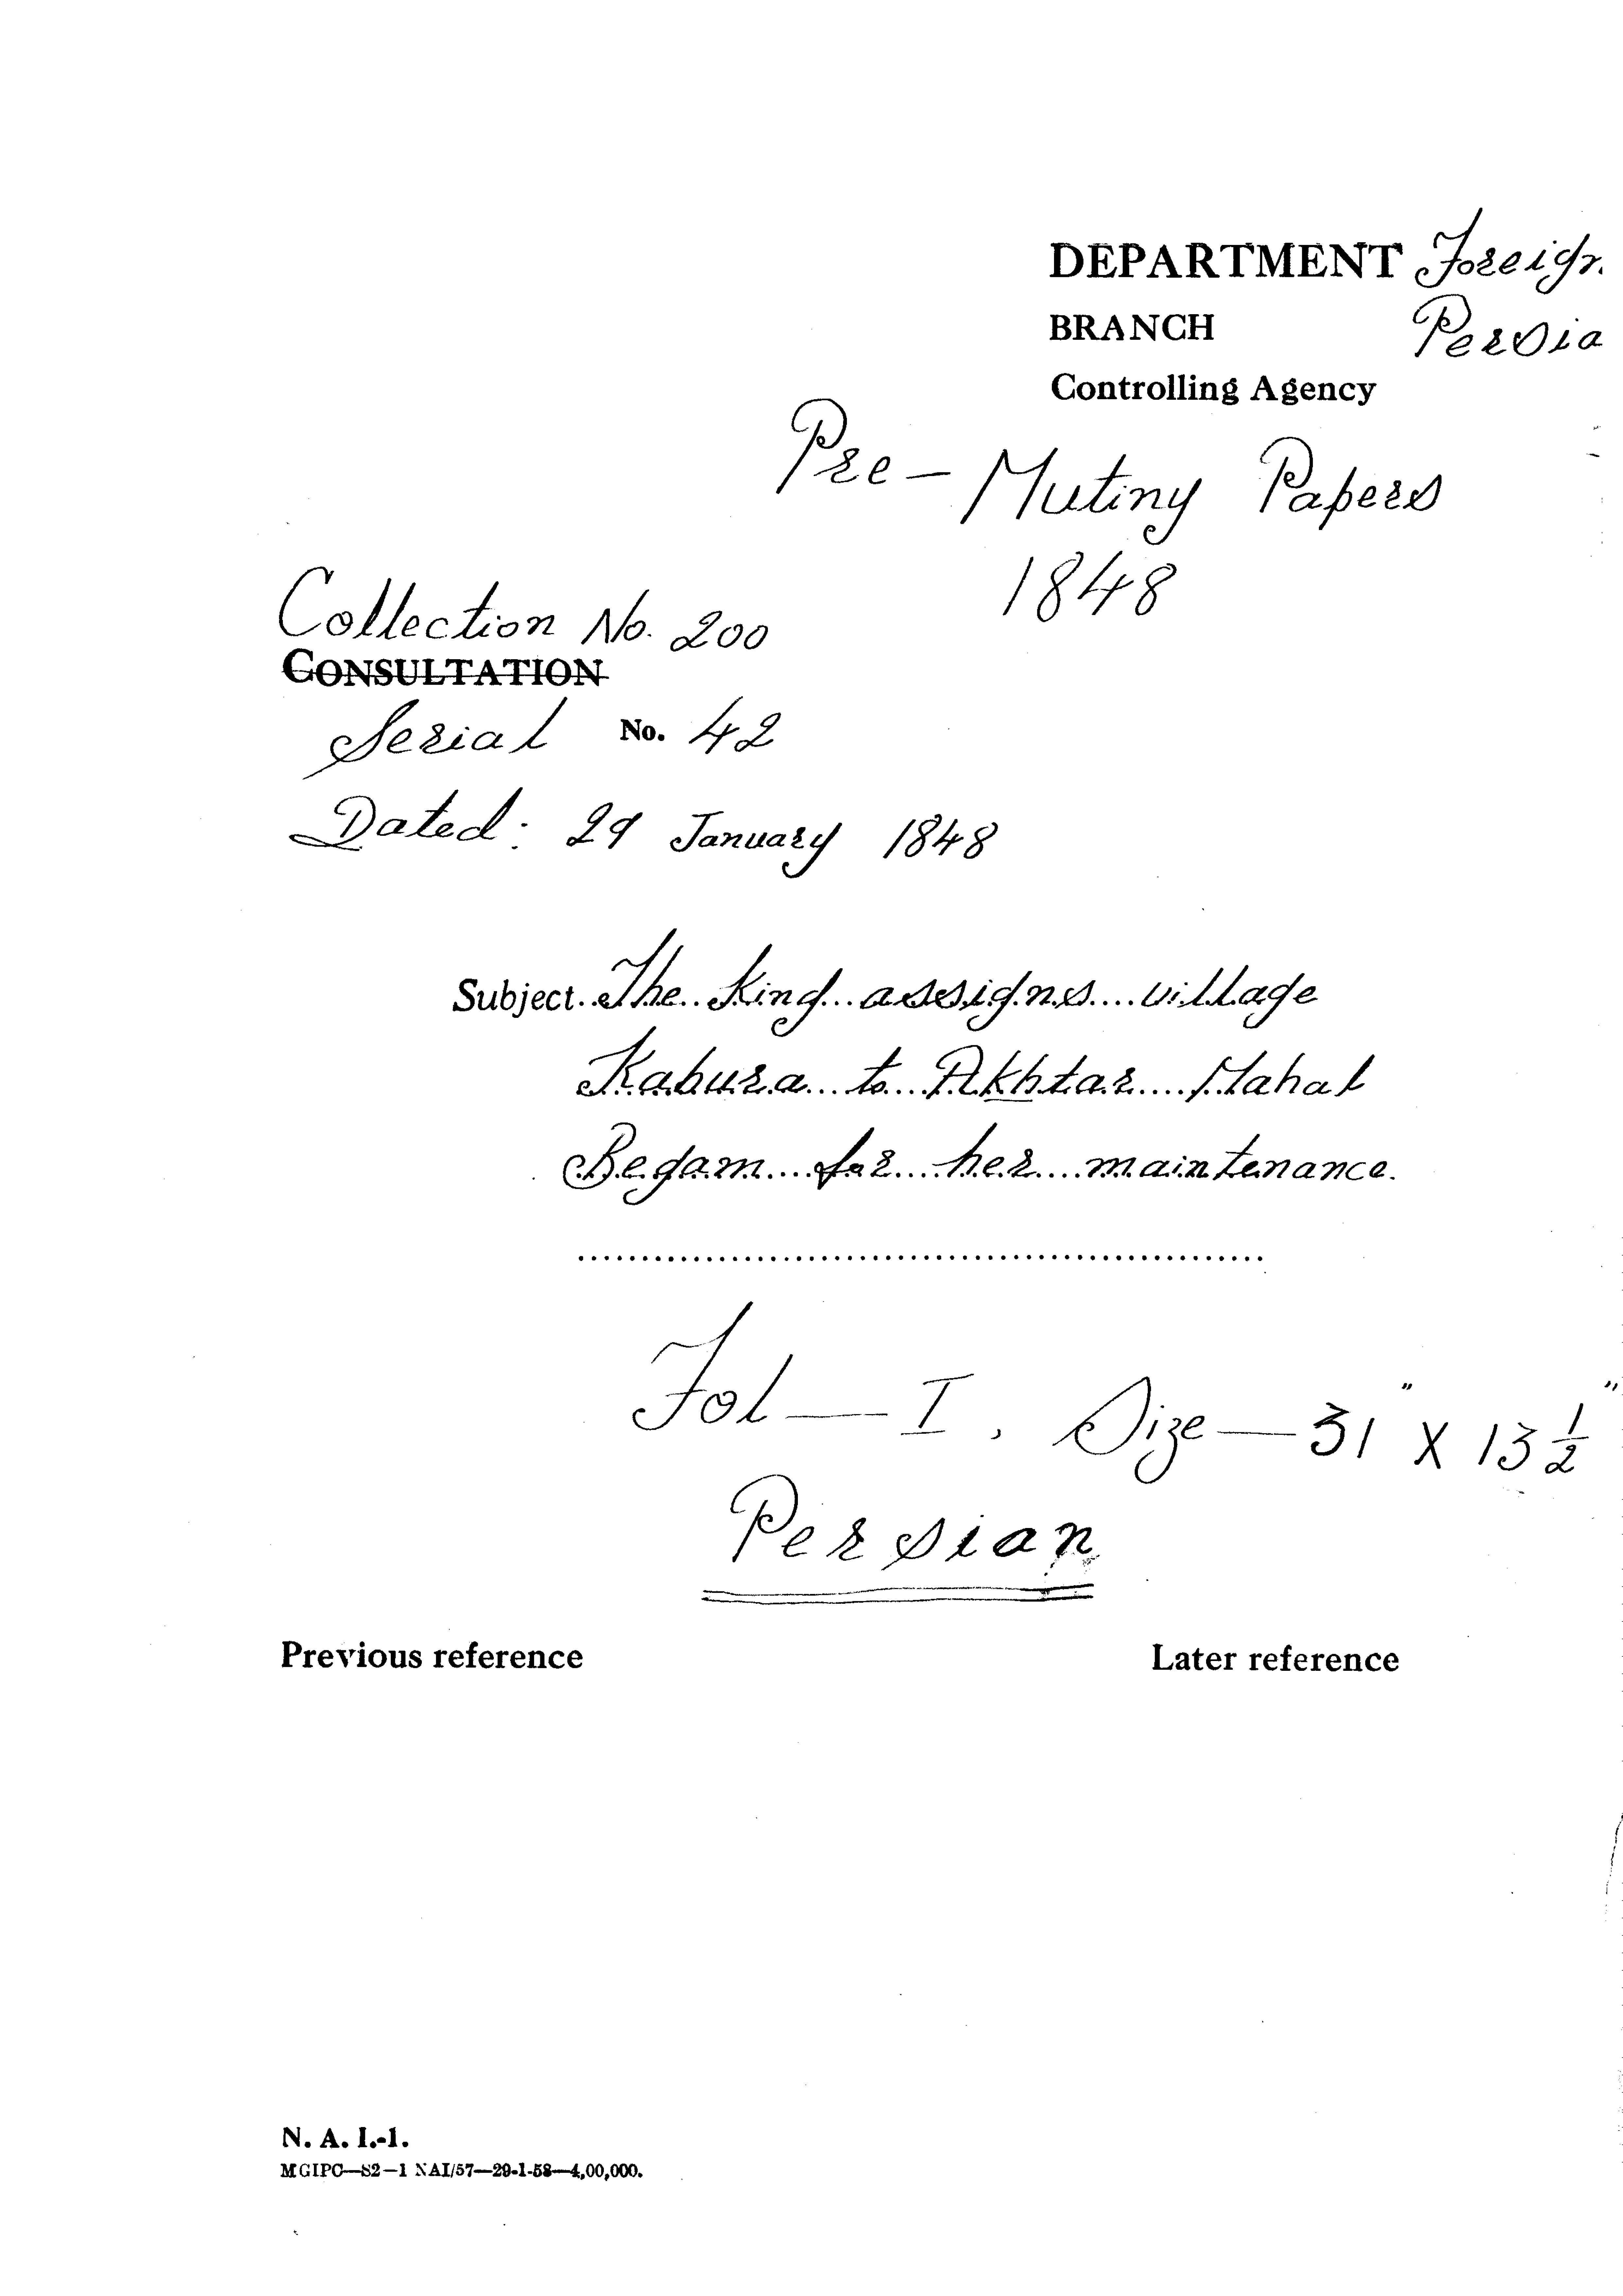 DEPARTMENT Foreign
BRANCH Persia
Controlling Agency
Pre-Mutiny Papers
1848
Collection No. 200
CONSULTATION
Serial No. 42
Dated: 29 January 1848
Subject..The..King..assigns....village
Kabura...to....Akhtar....Mahal
Begam....for....her....maintenance.
......................................................
Fol — I, Size — 31" X 13 1/2"
Persian
Previous reference Later reference
N. A. I.-1.
MGIPC—S2—1 NAI/57—29-1-58—4,00,000.